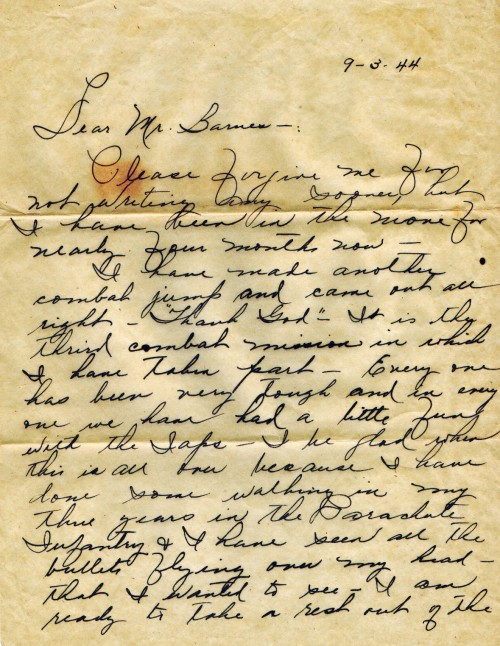 9-3-44
Dear Mr. Barnes-:
Please forgive me for
not writing any sooner, but
I have been in the move for
nearly four months now -
I have made another
combat jump and came out all
right - "Thank God" - It is the
third combat mission in which
I have taken part - Every one
has been very tough and in every
one we have had a little
with the Japs - I be glad when
this is all over because I have
done some walking in my
three years in the Parachute
Infantry & I have seen all the
bullets flying over my head -
that I wanted to see - I am
ready to take a rest out of the